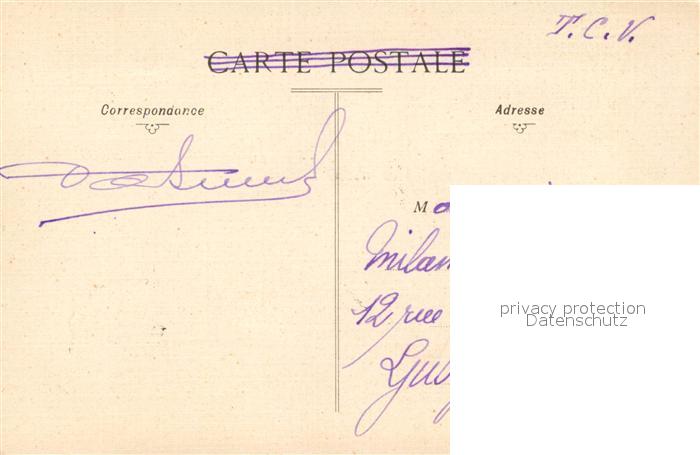 T.C.V.
CARTE POSTALE
Correspondance
Adresse
M
12 rue
privacy protection
Datenschutz